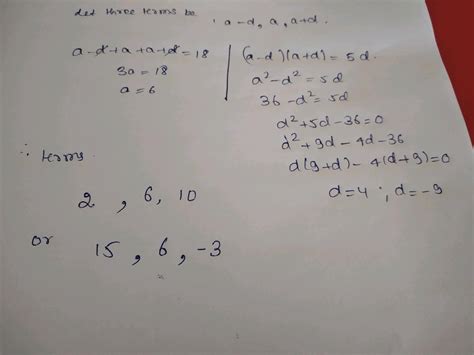 let three terms be, a-d, a, a+d.
a-d+a+a+d=18
3a=18
a=6
(a-d)(a+d)=5d.
a²-d²=5d
36-d²=5d
d²+5d-36=0
d²+9d-4d-36
d(9+d)-4(d+9)=0
d=4 ; d=-9
∴ terms
2, 6, 10
or 15, 6, -3